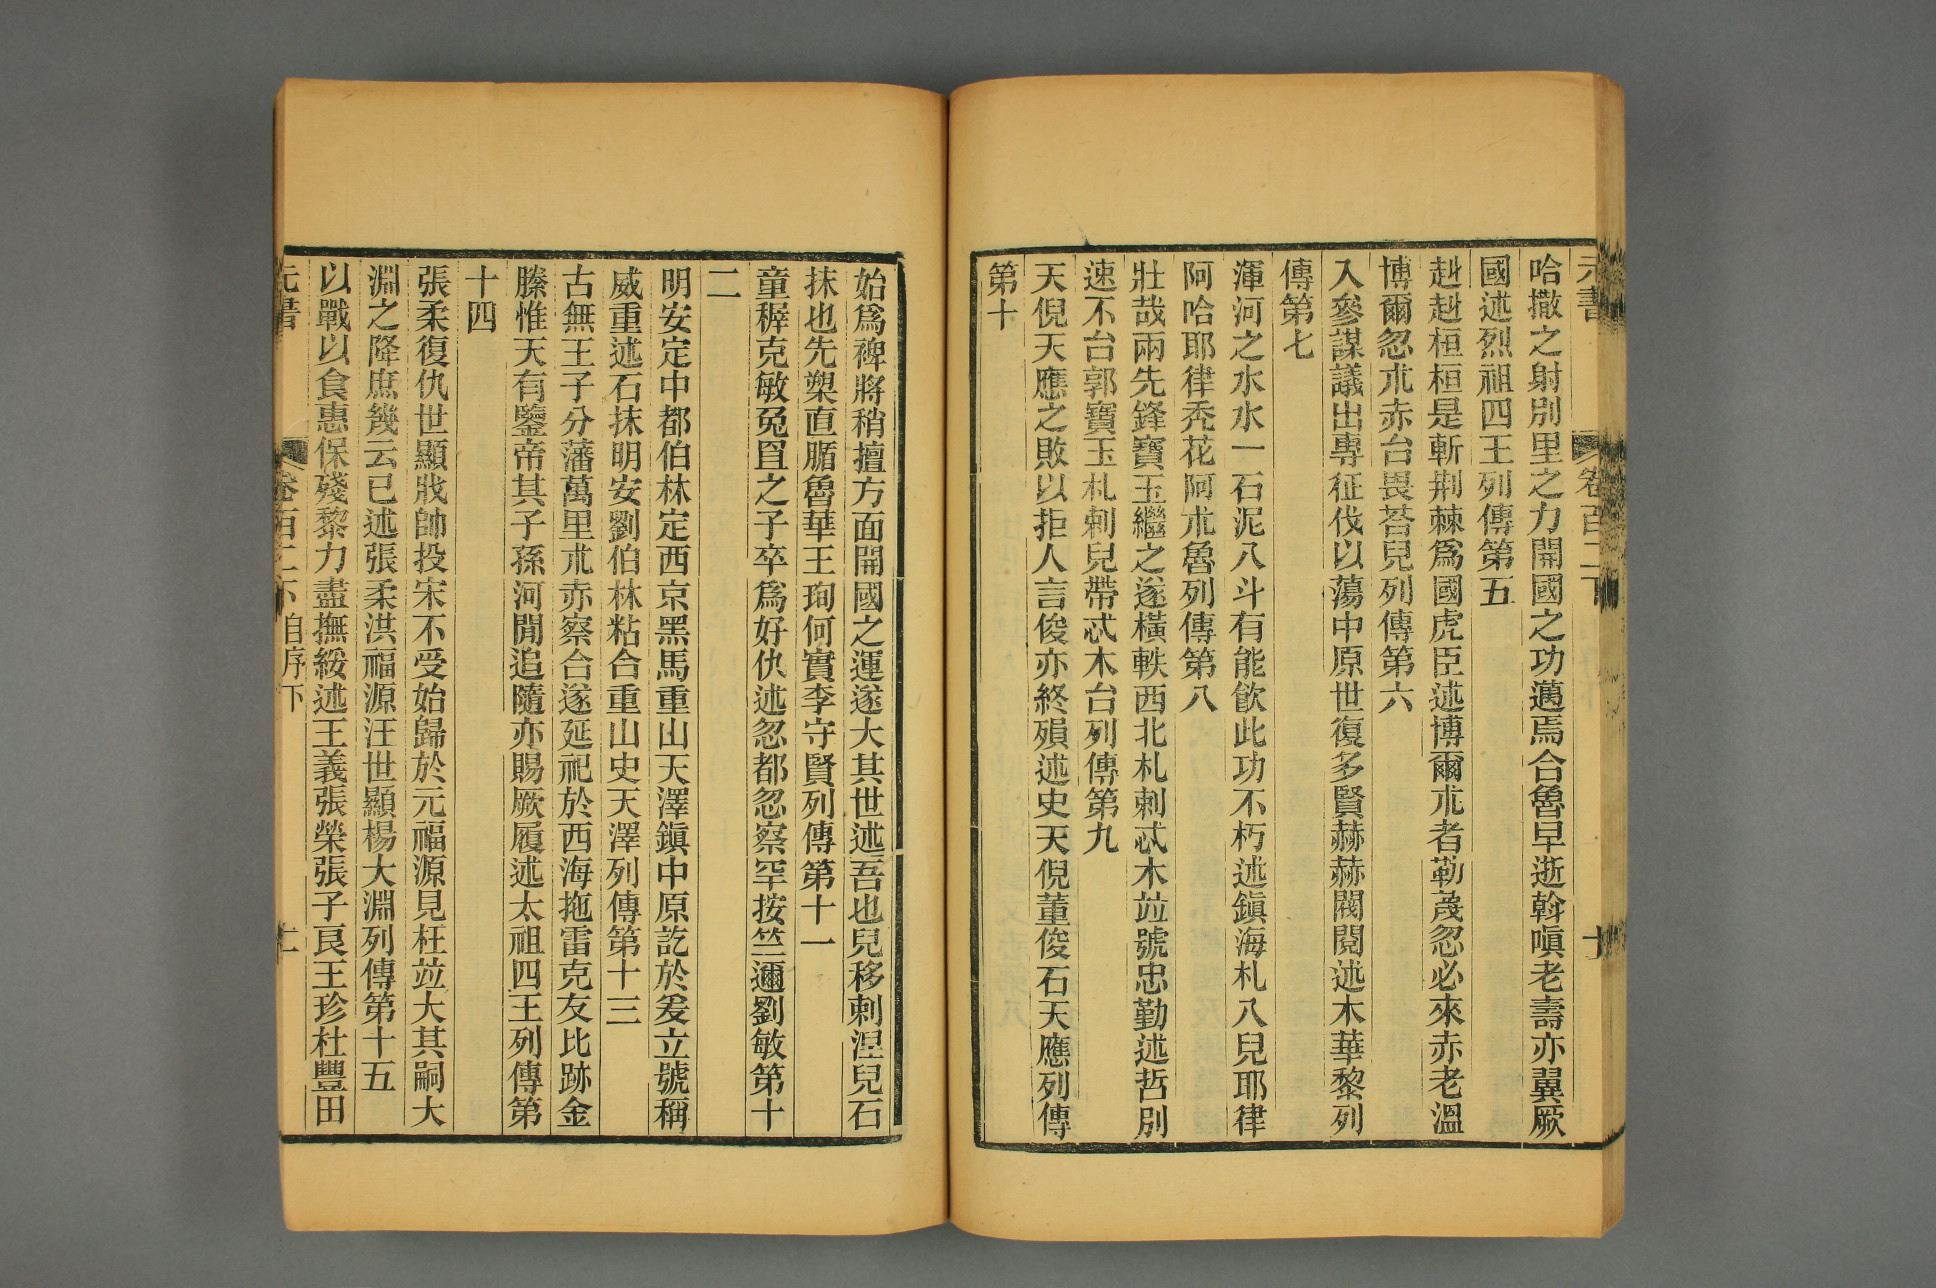 元書
卷百二下
哈撒之射別里之力開國之功邁焉合魯早逝斡嗔老壽亦翼厥
國述烈祖四王列傳第五
赳赳桓桓是斬荆棘爲國虎臣述博爾朮者勒蔑忽必來赤老溫
博爾忽朮赤台畏荅兒列傳第六
入參謀議出專征伐以蕩中原世復多賢赫赫閥閱述木華黎列
傳第七
渾河之水水一石泥八斗有能飮此功不朽述鎭海札八兒耶律
阿哈耶律禿花阿朮魯列傳第八
壯哉兩先鋒寶玉繼之遂橫軼西北札剌忒木竝號忠勤述哲別
速不台郭寶玉札剌兒帶忒木台列傳第九
天倪天應之敗以拒人言俊亦終殞述史天倪董俊石天應列傳
第十
始爲裨將稍擅方面開國之運遂大其世述吾也兒移剌涅兒石
抹也先槊直腯魯華王珣何實李守賢列傳第十一
童穉克敏兔罝之子卒爲好仇述忽都忽察罕按竺邇劉敏第十
二
明安定中都伯林定西京黑馬重山天澤鎭中原訖於爰立號稱
威重述石抹明安劉伯林粘合重山史天澤列傳第十三
古無王子分藩萬里朮赤察合遂延祀於西海拖雷克友比跡金
縢惟天有鑒帝其子孫河閒追隨亦賜厥履述太祖四王列傳第
十四
張柔復仇世顯戕帥投宋不受始歸於元福源見枉竝大其嗣大
淵之降庶幾云已述張柔洪福源汪世顯楊大淵列傳第十五
以戰以食惠保殘黎力盡撫綏述王義張榮張子良王珍杜豐田
元書
卷百二下自序下